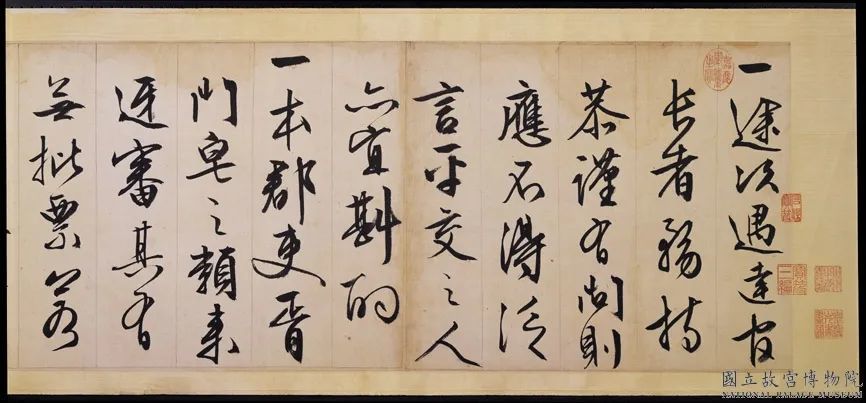 一途次遇達官
長者務持
恭謹有問則
應不得泛
言平交之人
亦宜斟酌
一本郡吏胥
門皂之類來
迓審其有
無批票若
國立故宮博物院
NATIONAL PALACE MUSEUM